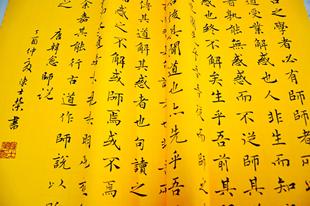 之學者必有師師者
道受業解惑也人非生而知
者孰能無惑惑而不從師其
也終不解矣生乎吾前其
後其聞道也亦先乎吾
傳其道解其惑者也句讀之
惑之不解或師焉或不
余嘉其能行古道作師說以
唐韓愈師說
丁酉仲夏
士榮書